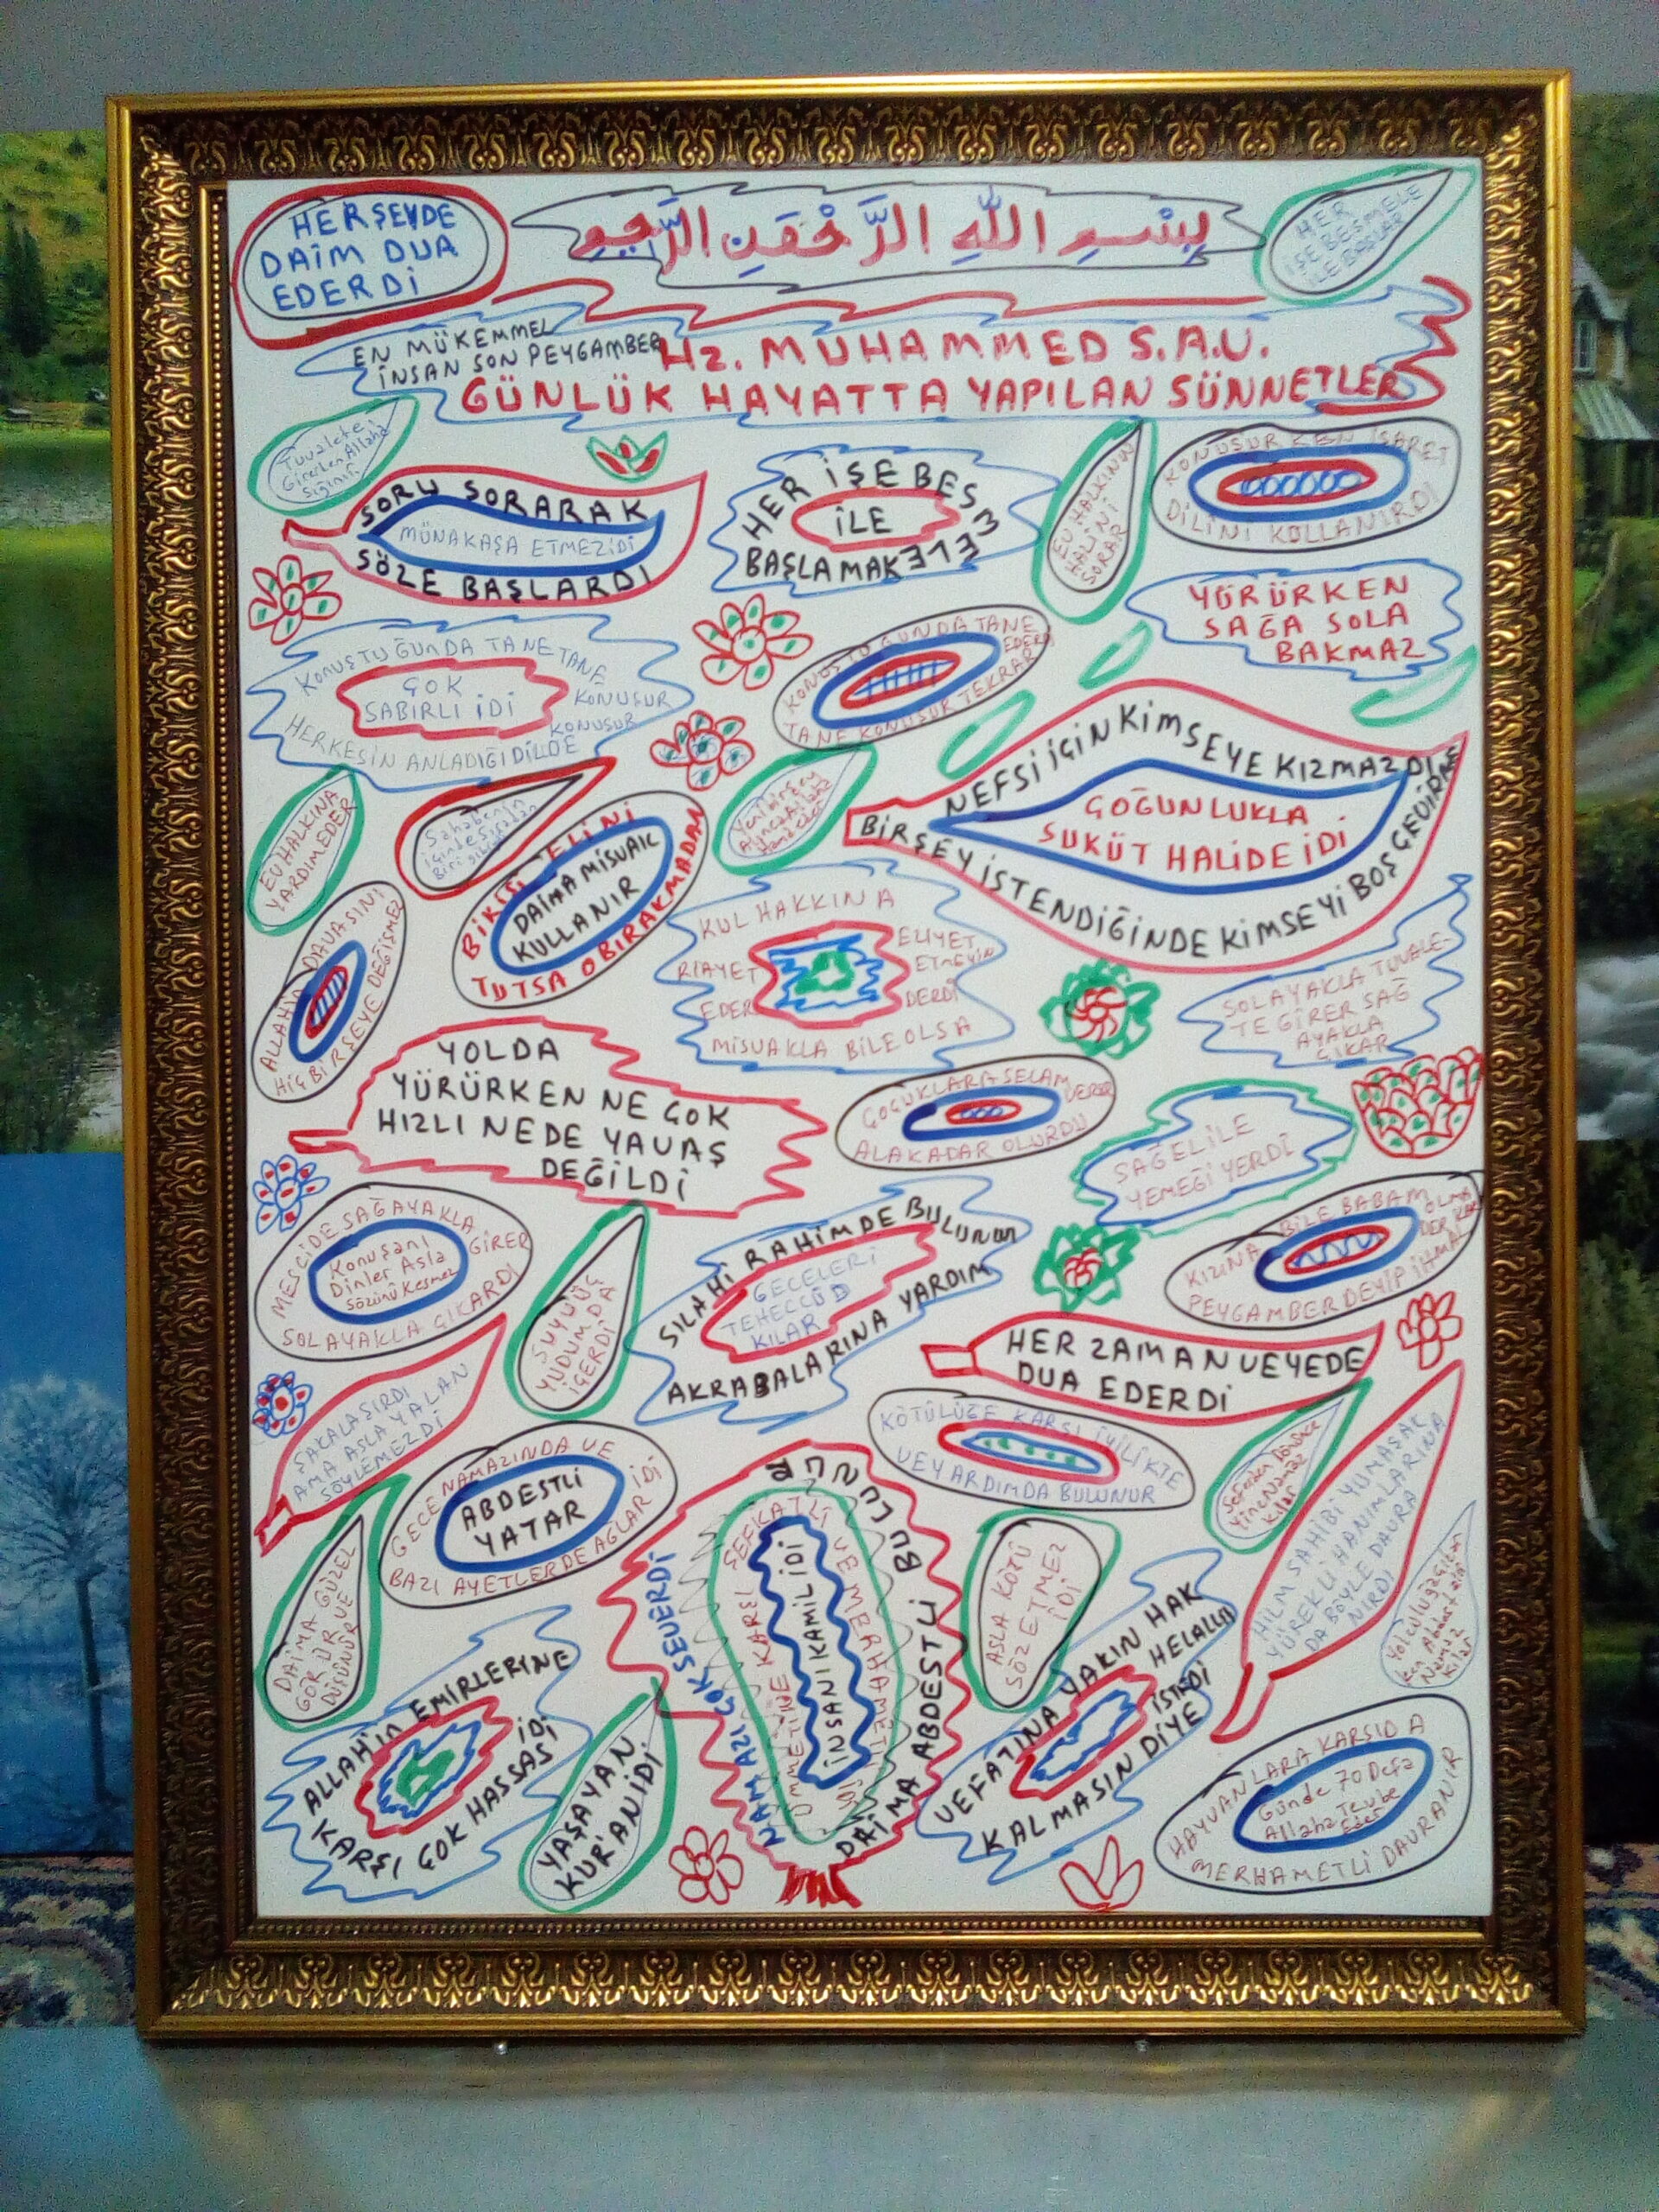 HERŞEYDE
DAİM DUA
EDERDİ
بِسْمِ اللهِ الرَّحْمَنِ الرَّحِيمِ
HER
İŞE BESMELE
İLE BAŞLAR
EN MÜKEMMEL
İNSAN SON PEYGAMBER
Hz. MUHAMMED S.A.V.
GÜNLÜK HAYATTA YAPILAN SÜNNETLER
Tuvalete
Girerken Allaha
Sığınır
SORU SORARAK
MÜNAKAŞA ETMEZİDİ
SÖZE BAŞLARDI
HER İŞE BESMELE
İLE
BAŞLAMAK
EV HALKININ
HALİNİ
SORAR
KONUŞURKEN İŞARET
DİLİNİ KULLANIRDI
YÜRÜRKEN
SAĞA SOLA
BAKMAZ
KONUŞTUĞUNDA TANE TANE
KONUŞUR
ÇOK
SABIRLI İDİ
HERKESİN ANLADIĞI DİLDE
KONUŞUR
KONUŞTUĞUNDA TANE
TANE KONUŞUR TEKRAR
EDERDİ
NEFSİ İÇİN KİMSEYE KIZMAZDI
ÇOĞUNLUKLA
SUKÜT HALİDE İDİ
BİRŞEY İSTENDİĞİNDE KİMSEYİ BOŞ ÇEVİRMEZ
EV HALKINA
YARDIM EDER
Sahabenin
içinde Sıradan
Biri gibiydi
BİRİSİ ELİNİ
TUTSA O BIRAKMADAN
DAİMA MİSVAK
KULLANIR
Yeni birşey
KUL HAKKINA
RİAYET
EDER
EZİYET
ETMEYİN
DERDİ
MİSVAKLA BİLE OLSA
SOL AYAKLA TUVALE-
TE GİRER SAĞ
AYAKLA
ÇIKAR
ALLAHIN DAVASINI
HİÇ BİRŞEYE DEĞİŞMEZ
YOLDA
YÜRÜRKEN NE ÇOK
HIZLI NEDE YAVAŞ
DEĞİLDİ
ÇOÇUKLARA SELAM
VERER
ALAKADAR OLURDU
SAĞ EL İLE
YEMEĞİ YERDİ
MESCİDE SAĞ AYAKLA
GİRER
Konuşanı
Dinler Asla
Sözünü Kesmez
SOL AYAKLA ÇIKARDI
SUYU ÜÇ
YUDUM DA
İÇERDİ
SILAHİ RAHİMDE BULUNUR
GECELERİ
TEHECCÜD
KILAR
AKRABALARINA YARDIM
KIZINA BİLE BABAM
PEYGAMBER DEYİP İHMAL
HER ZAMAN VEYEDE
DUA EDERDİ
ŞAKALAŞIRDI
AMA ASLA YALAN
SÖYLEMEZDİ
GECE NAMAZINDA VE
ABDESTLİ
YATAR
BAZI AYETLERDE AĞLAR İDİ
KÖTÜLÜĞE KARŞI İYİLİKTE
VE YARDIMDA BULUNUR
Seferden Dönünce
Yine Namaz
Kılar
HİLM SAHİBİ YUMUŞAK
YÜREKLİ HANIMLARINA
DA BÖYLE DAVRA
NIRDI
DAİMA GÜZEL
GÖRÜR VE
DÜŞÜNÜR VE
NAMAZI ÇOK SEVERDİ
ÜMMETİNE KARŞI ŞEFKATLİ VE MERHAMETLİ İDİ
İNSANI KAMİL İDİ
DAİMA ABDESTLİ BULUNUR
ASLA KÖTÜ
SÖZ ETMEZ
İDİ
Yolculuğa çıkar
Namaz
Kılar
ALLAH'IN EMİRLERİNE
İDİ
KARŞI ÇOK HASSAS
YAŞAYAN
KUR'AN İDİ
VEFATINA YAKIN HAK
HELALLIĞI
İSTEDİ
KALMASIN DİYE
HAYVANLARA KARŞI DA
Günde 70 Defa
Allaha Tevbe
Eder
MERHAMETLİ DAVRANIR